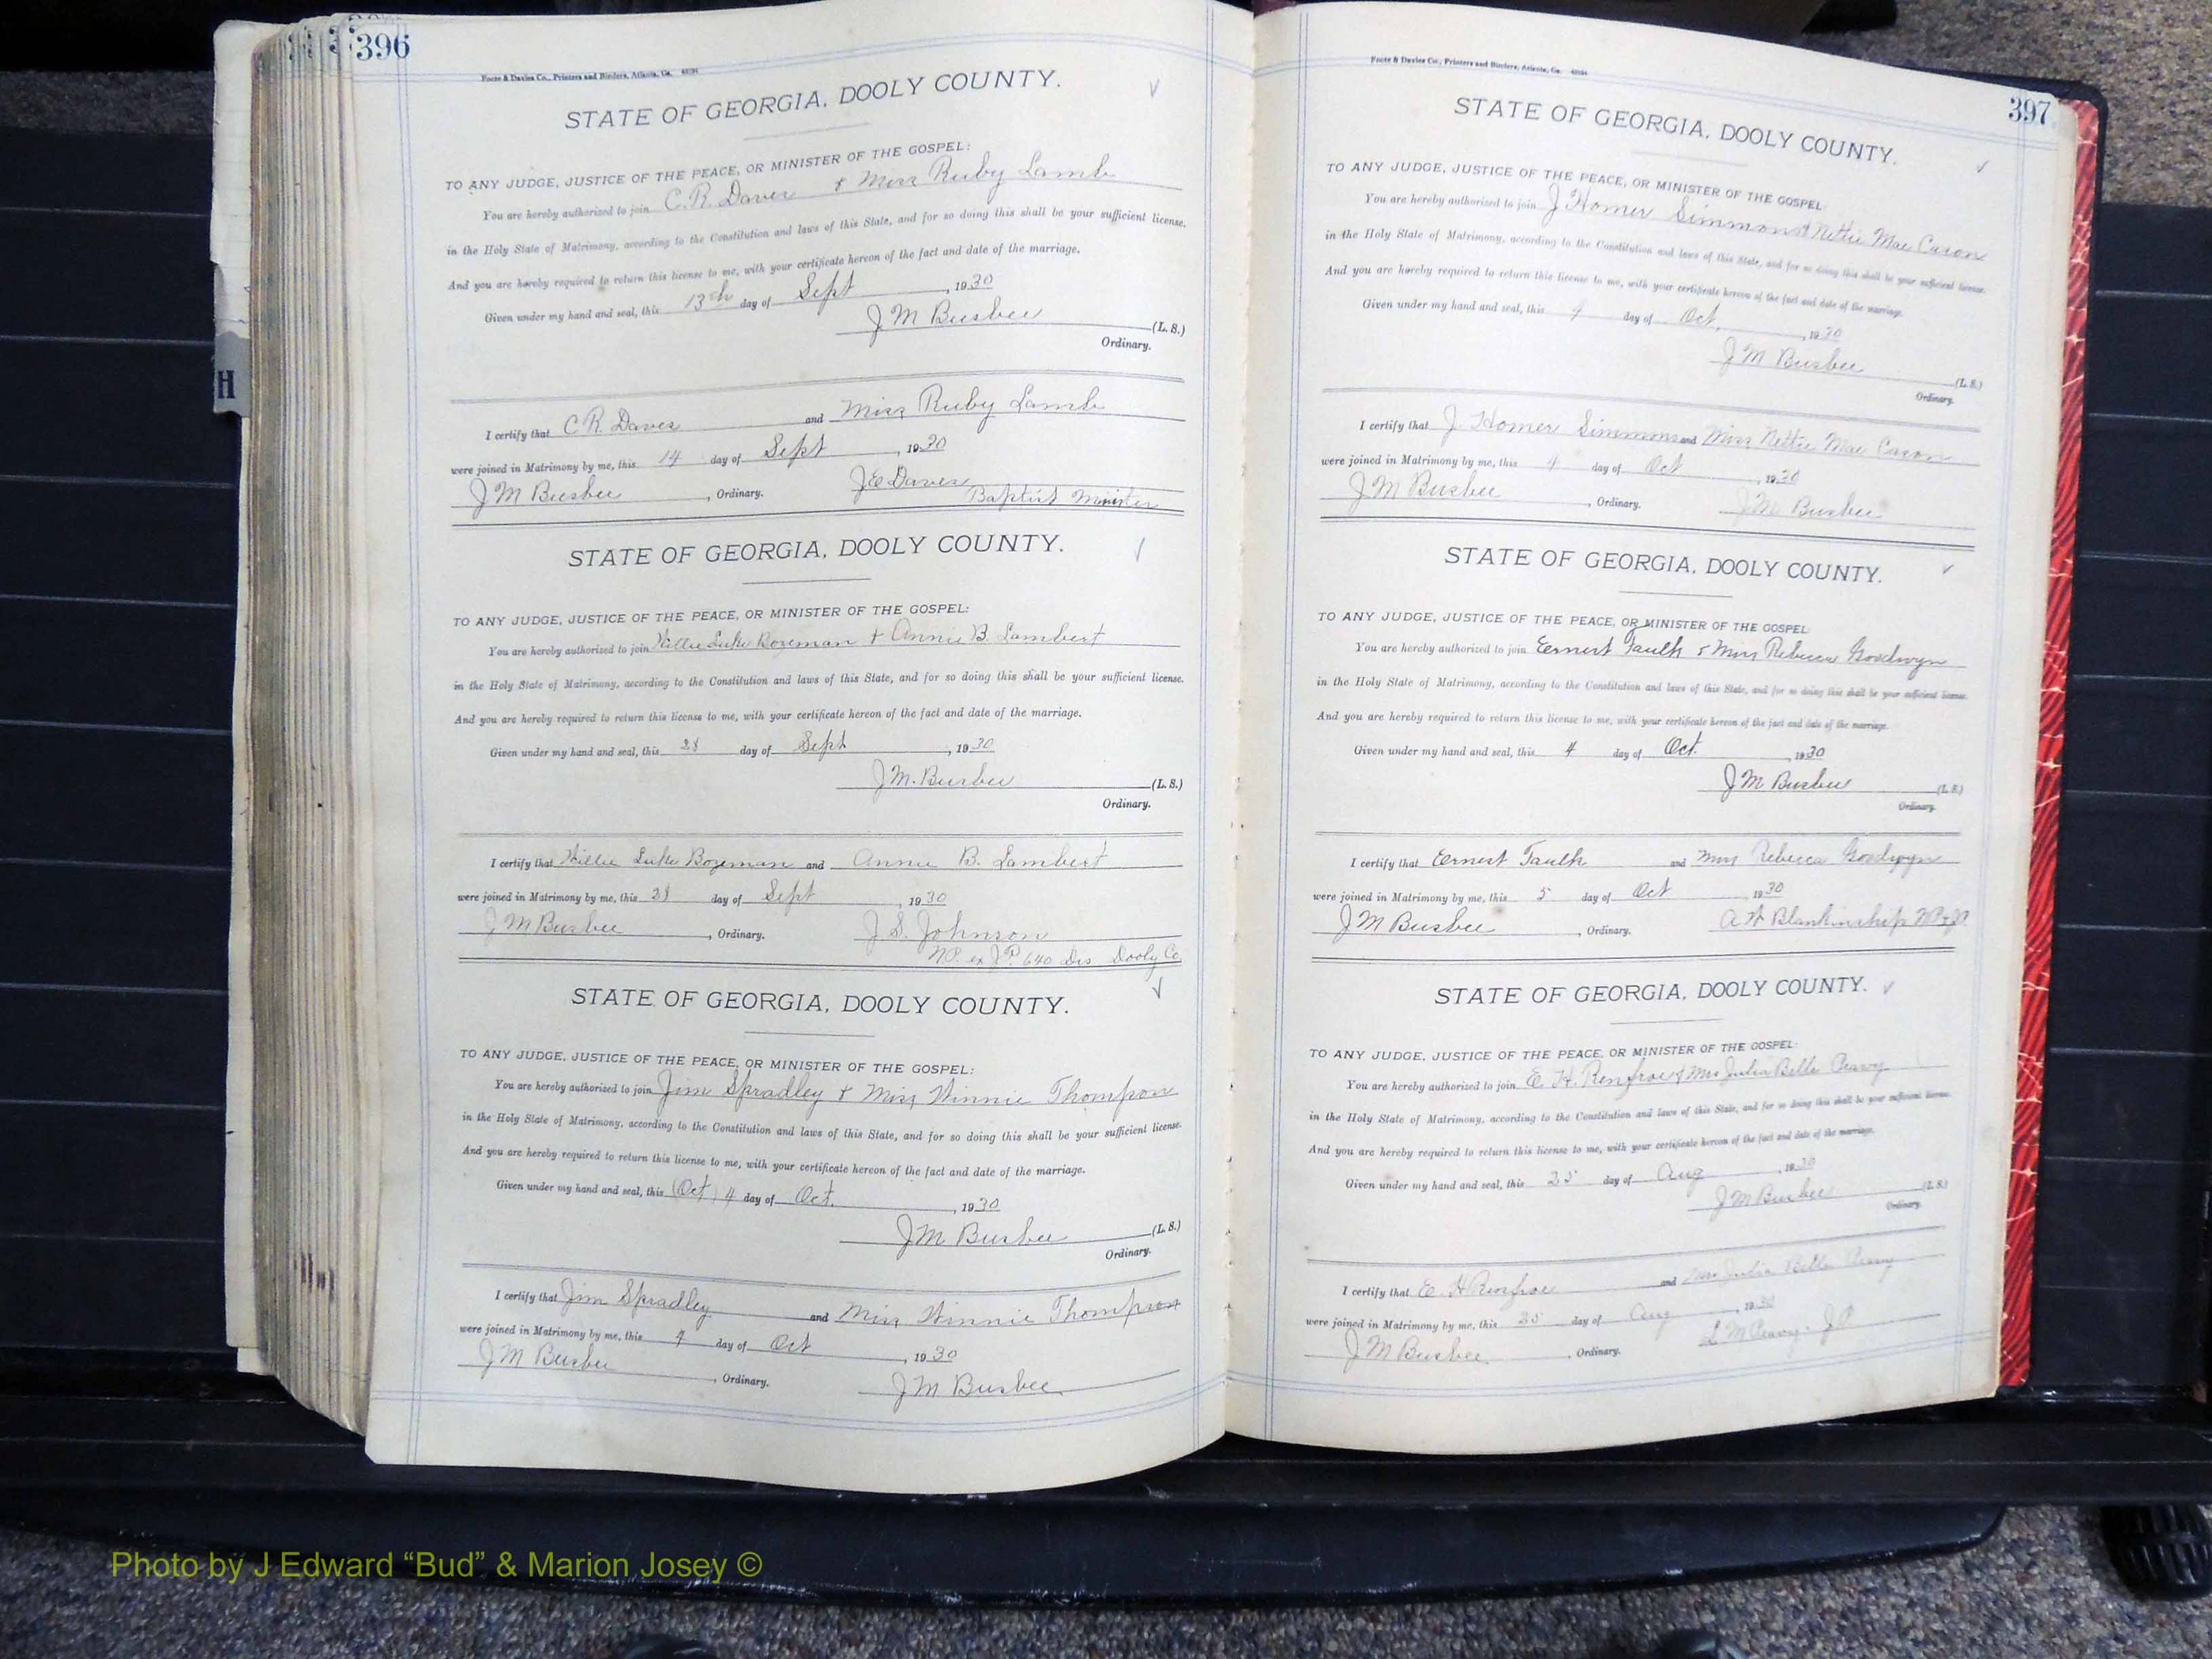 396
Foote & Davies Co., Printers and Binders, Atlanta, Ga.
STATE OF GEORGIA, DOOLY COUNTY.
TO ANY JUDGE, JUSTICE OF THE PEACE, OR MINISTER OF THE GOSPEL:
You are hereby authorized to join C.R. Daves & Miss Ruby Lamb
in the Holy State of Matrimony, according to the Constitution and laws of this State, and for so doing this shall be your sufficient license.
And you are hereby required to return this license to me, with your certificate hereon of the fact and date of the marriage.
Given under my hand and seal, this 13th day of Sept, 1930
J M Busbee (L. S.)
Ordinary.
I certify that C R. Daves and Miss Ruby Lamb
were joined in Matrimony by me, this 14 day of Sept, 1930
J M Busbee, Ordinary. J E Daves
Baptist Minister
STATE OF GEORGIA, DOOLY COUNTY.
TO ANY JUDGE, JUSTICE OF THE PEACE, OR MINISTER OF THE GOSPEL:
You are hereby authorized to join Willie Luke Bozeman & Annie B. Lambert
in the Holy State of Matrimony, according to the Constitution and laws of this State, and for so doing this shall be your sufficient license.
And you are hereby required to return this license to me, with your certificate hereon of the fact and date of the marriage.
Given under my hand and seal, this 28 day of Sept, 1930
J M. Busbee (L. S.)
Ordinary.
I certify that Willie Luke Bozeman and Annie B. Lambert
were joined in Matrimony by me, this 28 day of Sept, 1930
J M Busbee, Ordinary. J. S. Johnson
N.P. ex J.P. 640 Dis Dooly Co
STATE OF GEORGIA, DOOLY COUNTY.
TO ANY JUDGE, JUSTICE OF THE PEACE, OR MINISTER OF THE GOSPEL:
You are hereby authorized to join Jim Spradley & Miss Winnie Thompson
in the Holy State of Matrimony, according to the Constitution and laws of this State, and for so doing this shall be your sufficient license.
And you are hereby required to return this license to me, with your certificate hereon of the fact and date of the marriage.
Given under my hand and seal, this (Oct) 4 day of Oct., 1930
J M Busbee (L. S.)
Ordinary.
I certify that Jim Spradley and Miss Winnie Thompson
were joined in Matrimony by me, this 4 day of Oct, 1930
J M Busbee, Ordinary. J M Busbee
H
397
Foote & Davies Co., Printers and Binders, Atlanta, Ga.
STATE OF GEORGIA, DOOLY COUNTY.
TO ANY JUDGE, JUSTICE OF THE PEACE, OR MINISTER OF THE GOSPEL:
You are hereby authorized to join J Homer Simmons & Nettie Mae Cason
in the Holy State of Matrimony, according to the Constitution and laws of this State, and for so doing this shall be your sufficient license.
And you are hereby required to return this license to me, with your certificate hereon of the fact and date of the marriage.
Given under my hand and seal, this 4 day of Oct., 1930
J M Busbee (L. S.)
Ordinary.
I certify that J. Homer Simmons and Miss Nettie Mae Cason
were joined in Matrimony by me, this 4 day of Oct, 1930
J M Busbee, Ordinary. J M Busbee
STATE OF GEORGIA, DOOLY COUNTY.
TO ANY JUDGE, JUSTICE OF THE PEACE, OR MINISTER OF THE GOSPEL:
You are hereby authorized to join Ernest Faulk & Mrs Rebecca Goodwyn
in the Holy State of Matrimony, according to the Constitution and laws of this State, and for so doing this shall be your sufficient license.
And you are hereby required to return this license to me, with your certificate hereon of the fact and date of the marriage.
Given under my hand and seal, this 4 day of Oct., 1930
J M Busbee (L. S.)
Ordinary.
I certify that Ernest Faulk and Mrs Rebecca Goodwyn
were joined in Matrimony by me, this 5 day of Oct, 1930
J M Busbee, Ordinary. A W Blankinship
STATE OF GEORGIA, DOOLY COUNTY.
TO ANY JUDGE, JUSTICE OF THE PEACE, OR MINISTER OF THE GOSPEL:
You are hereby authorized to join E. H. Renfroe & Mrs Julia Belle Peavy
in the Holy State of Matrimony, according to the Constitution and laws of this State, and for so doing this shall be your sufficient license.
And you are hereby required to return this license to me, with your certificate hereon of the fact and date of the marriage.
Given under my hand and seal, this 25 day of Aug, 1930
J M Busbee (L. S.)
Ordinary.
I certify that E. H Renfroe and Mrs Julia Belle Peavy
were joined in Matrimony by me, this 25 day of Aug, 1930
J M Busbee, Ordinary. L M Peavy J.P.
Photo by J Edward “Bud” & Marion Josey ©